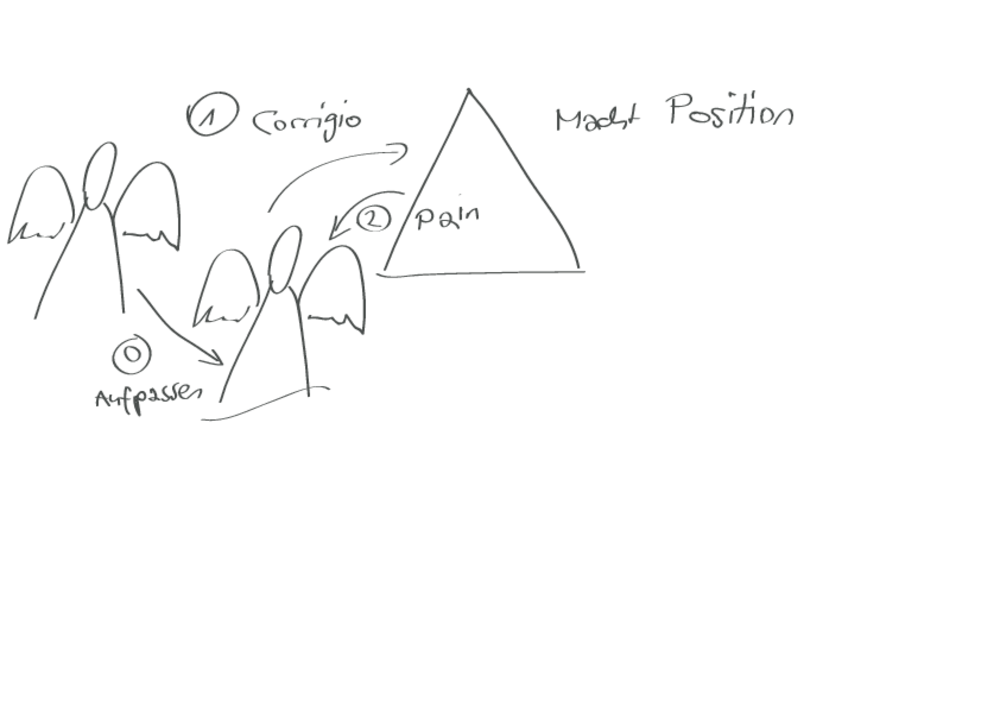 1 Corrigio
Macht Position
2 Pain
0
Aufpassen